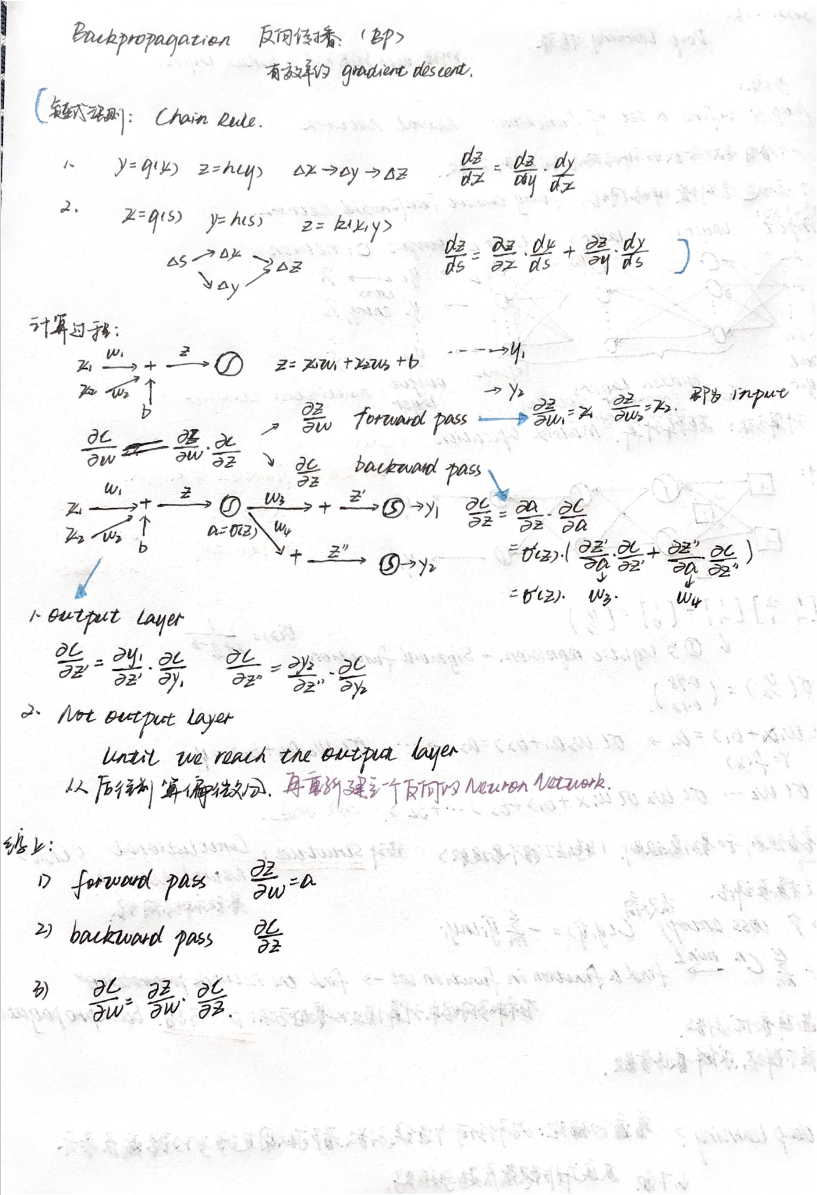 Backpropagation 反向传播. (BP)
有效率的 gradient descent.
链式法则: Chain Rule.
1. y=g(x) z=h(y) Δx→Δy→Δz dz/dx = dz/dy · dy/dx
2. x=g(s) y=h(s) z=k(x,y)
Δs→Δx→Δz dz/ds = ∂z/∂x · dx/ds + ∂z/∂y · dy/ds
↘Δy↗
计算过程:
x₁ w₁ + z → z=x₁w₁+x₂w₂+b ----→y₁
x₂ w₂ b →y₂
∂z/∂w forward pass → ∂z/∂w₁=x₁ ∂z/∂w₂=x₂. 即为 input
∂C/∂w = ∂z/∂w · ∂C/∂z
∂C/∂z backward pass
x₁ w₁ + z → w₃ + z' → y₁ ∂C/∂z = ∂a/∂z · ∂C/∂a
x₂ w₂ b a=σ(z) w₄
+ z'' → y₂ =σ'(z)·(∂z'/∂a · ∂C/∂z' + ∂z''/∂a · ∂C/∂z'')
=σ'(z). w₃. w₄
1. Output Layer
∂C/∂z' = ∂y₁/∂z' · ∂C/∂y₁ ∂C/∂z'' = ∂y₂/∂z'' · ∂C/∂y₂
2. Not Output Layer
Until we reach the output layer
从后往前算偏微分. 再重新建立一个反向的 Neuron Network.
综上:
1) forward pass ∂z/∂w=a
2) backward pass ∂C/∂z
3) ∂C/∂w = ∂z/∂w · ∂C/∂z.